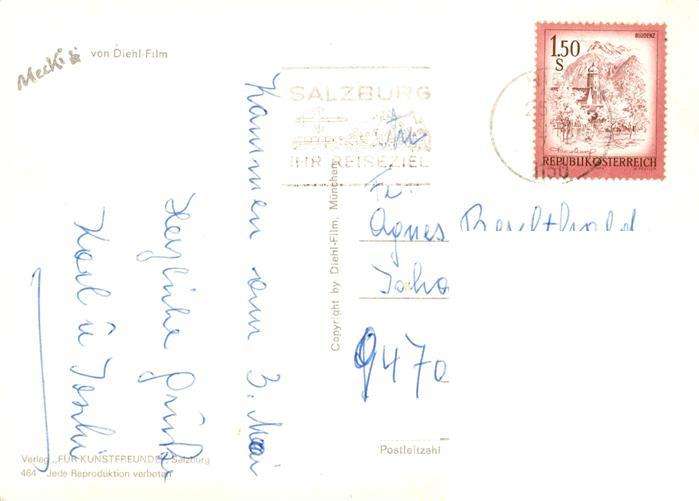 Mecki
von Diehl-Film
SALZBURG
IHR REISEZIEL
BLUDENZ
1.50
S
REPUBLIK ÖSTERREICH
Kommen am 3. Mai
Herzliche Grüße
Karl u
Copyright by Diehl-Film, München
Fr.
Agnes
Joha
9470
Postleitzahl
Verlag „FÜR KUNSTFREUNDE" Salzburg
464 Jede Reproduktion verboten